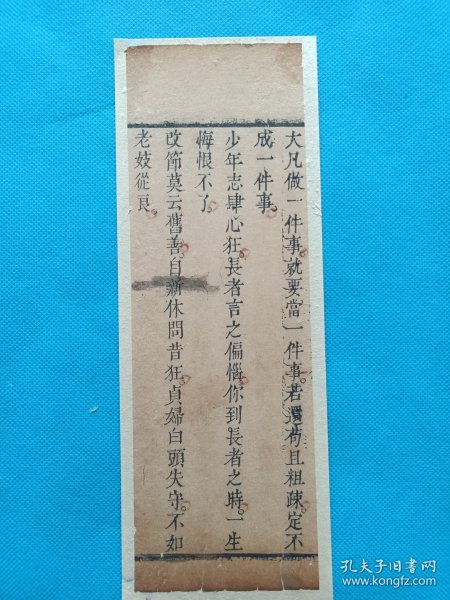 大凡做一件事就要當一件事若還苟且粗疎定不
成一件事。
少年志肆心狂長者言之偏惱你到長者之時一生
悔恨不了。
改節莫云舊善自新休問昔狂貞婦白頭失守不如
老妓從良。
孔夫子旧书网
www.kongfz.com